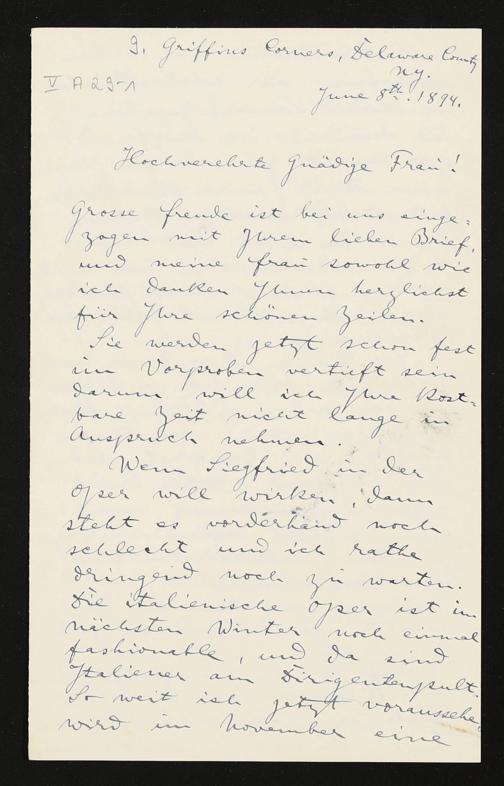 9. Griffins Corners, Delaware County
N.y.
V A 29-1
June 8th. 1894.
Hochverehrte Gnädige Frau!
Grosse freude ist bei uns einge=
zogen mit Ihrem lieben Brief,
und meine frau sowohl wie
ich danken Ihnen herzlichst
für Ihre schönen Zeilen.
Sie werden jetzt schon fest
im Vorproben vertieft sein
darum will ich Ihre Kost=
bare Zeit nicht lange in
Anspruch nehmen.
Wenn Siegfried in der
Oper will wirken, dann
steht es vorderhand noch
schlecht und ich rathe
dringend noch zu warten.
Die italienische Oper ist im
nächsten Winter noch einmal
fashionable, und da sind
Italiener am Dirigentenpult.
So weit ich jetzt voraussehe,
wird im November eine